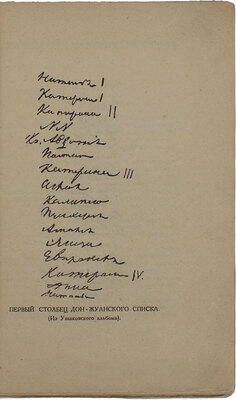 Наталья I
Катерина I
Катерина II
NN
Кн. Авдотія
Настасья
Катерина III
Аглая
Калипсо
Пульхерія
Амалія
Элиза
Евпраксея
Катерина IV.
Анна
Наталья
ПЕРВЫЙ СТОЛБЕЦ ДОН-ЖУАНСКОГО СПИСКА.
(Из Ушаковского альбома).